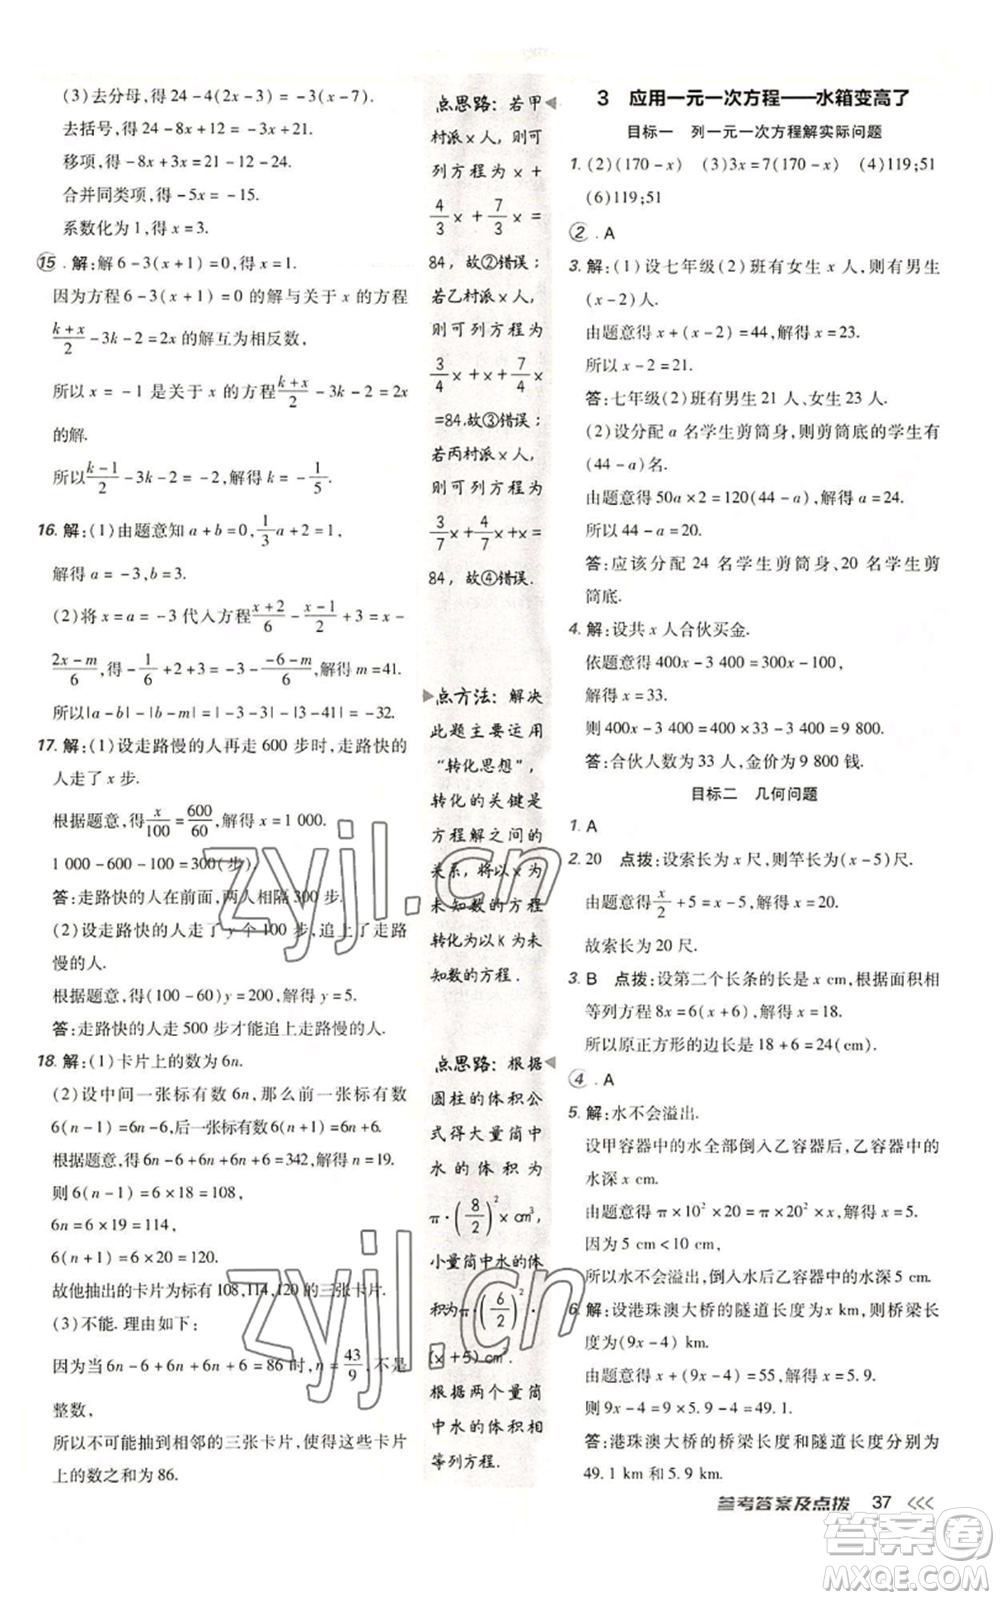 (3)去分母,得 24－4(2x－3)＝3(x－7).
去括号,得 24－8x＋12＝－3x＋21.
移项,得－8x＋3x＝21－24－12.
合并同类项,得－5x＝－15.
系数化为 1,得 x＝3.
15.解:解 6－3(x＋1)＝0,得 x＝1.
因为方程 6－3(x＋1)＝0 的解与关于 x 的方程
(k＋x)/2－3k－2＝2x 的解互为相反数,
所以 x＝－1 是关于 x 的方程(k＋x)/2－3k－2＝2x
的解.
所以(k－1)/2－3k－2＝－2,解得 k＝－1/5.
16.解:(1)由题意知 a＋b＝0,1/3a＋2＝1,
解得 a＝－3,b＝3.
(2)将 x＝a＝－3 代入方程(x＋2)/6－(x－1)/2＋3＝x－
(2x－m)/6,得－1/6＋2＋3＝－3－(－6－m)/6,解得 m＝41.
所以|a－b|－|b－m|＝|－3－3|－|3－41|＝－32.
17.解:(1)设走路慢的人再走 600 步时,走路快的
人走了 x 步.
根据题意,得 x/100＝600/60,解得 x＝1 000.
1 000－600－100＝300(步).
答:走路快的人在前面,两人相隔 300 步.
(2)设走路快的人走了 y 个 100 步,追上了走路
慢的人.
根据题意,得(100－60)y＝200,解得 y＝5.
答:走路快的人走 500 步才能追上走路慢的人.
18.解:(1)卡片上的数为 6n.
(2)设中间一张标有数 6n,那么前一张标有数
6(n－1)＝6n－6,后一张标有数 6(n＋1)＝6n＋6.
根据题意,得 6n－6＋6n＋6n＋6＝342,解得 n＝19.
则 6(n－1)＝6×18＝108,
6n＝6×19＝114,
6(n＋1)＝6×20＝120.
故他抽出的卡片为标有 108,114,120 的三张卡片.
(3)不能.理由如下:
因为当 6n－6＋6n＋6n＋6＝86 时,n＝43/9,不是
整数,
所以不可能抽到相邻的三张卡片,使得这些卡片
上的数之和为 86.
点思路:若甲
村派 x 人,则可
列方程为 x＋
4/3x＋7/3x＝
84,故②错误;
若乙村派 x 人,
则可列方程为
3/4x＋x＋7/4x
＝84,故③错误;
若丙村派 x 人,
则可列方程为
3/7x＋4/7x＋x＝
84,故④错误.
点方法:解决
此题主要运用
“转化思想”,
转化的关键是
方程解之间的
关系,将以 x 为
未知数的方程
转化为以 K 为未
知数的方程.
点思路:根据
圆柱的体积公
式得大量筒中
水的体积为
π·(8/2)²x cm³,
小量筒中水的体
积为π·(6/2)²·
(x＋5)cm³.
根据两个量筒
中水的体积相
等列方程.
3 应用一元一次方程——水箱变高了
目标一 列一元一次方程解实际问题
1.(2)(170－x) (3)3x＝7(170－x) (4)119;51
(6)119;51
②.A
3.解:(1)设七年级(2)班有女生 x 人,则有男生
(x－2)人.
由题意得 x＋(x－2)＝44,解得 x＝23.
所以 x－2＝21.
答:七年级(2)班有男生 21 人、女生 23 人.
(2)设分配 a 名学生剪筒身,则剪筒底的学生有
(44－a)名.
由题意得 50a×2＝120(44－a),解得 a＝24.
所以 44－a＝20.
答:应该分配 24 名学生剪筒身、20 名学生剪
筒底.
4.解:设共 x 人合伙买金.
依题意得 400x－3 400＝300x－100,
解得 x＝33.
则 400x－3 400＝400×33－3 400＝9 800.
答:合伙人数为 33 人,金价为 9 800 钱.
目标二 几何问题
1.A
2.20 点拨:设索长为 x 尺,则竿长为(x－5)尺.
由题意得 x/2＋5＝x－5,解得 x＝20.
故索长为 20 尺.
3.B 点拨:设第二个长条的长是 x cm,根据面积相
等列方程 8x＝6(x＋6),解得 x＝18.
所以原正方形的边长是 18＋6＝24(cm).
④.A
5.解:水不会溢出.
设甲容器中的水全部倒入乙容器后,乙容器中的
水深 x cm.
由题意得 π×10²×20＝π×20²×x,解得 x＝5.
因为 5 cm＜10 cm,
所以水不会溢出,倒入水后乙容器中的水深 5 cm.
6.解:设港珠澳大桥的隧道长度为 x km,则桥梁长
度为(9x－4) km.
由题意得 x＋(9x－4)＝55,解得 x＝5.9.
则 9x－4＝9×5.9－4＝49.1.
答:港珠澳大桥的桥梁长度和隧道长度分别为
49.1 km 和 5.9 km.
参考答案及点拨 37
zyjl.cn
zyjl.cn
答案圈
MXQE.COM